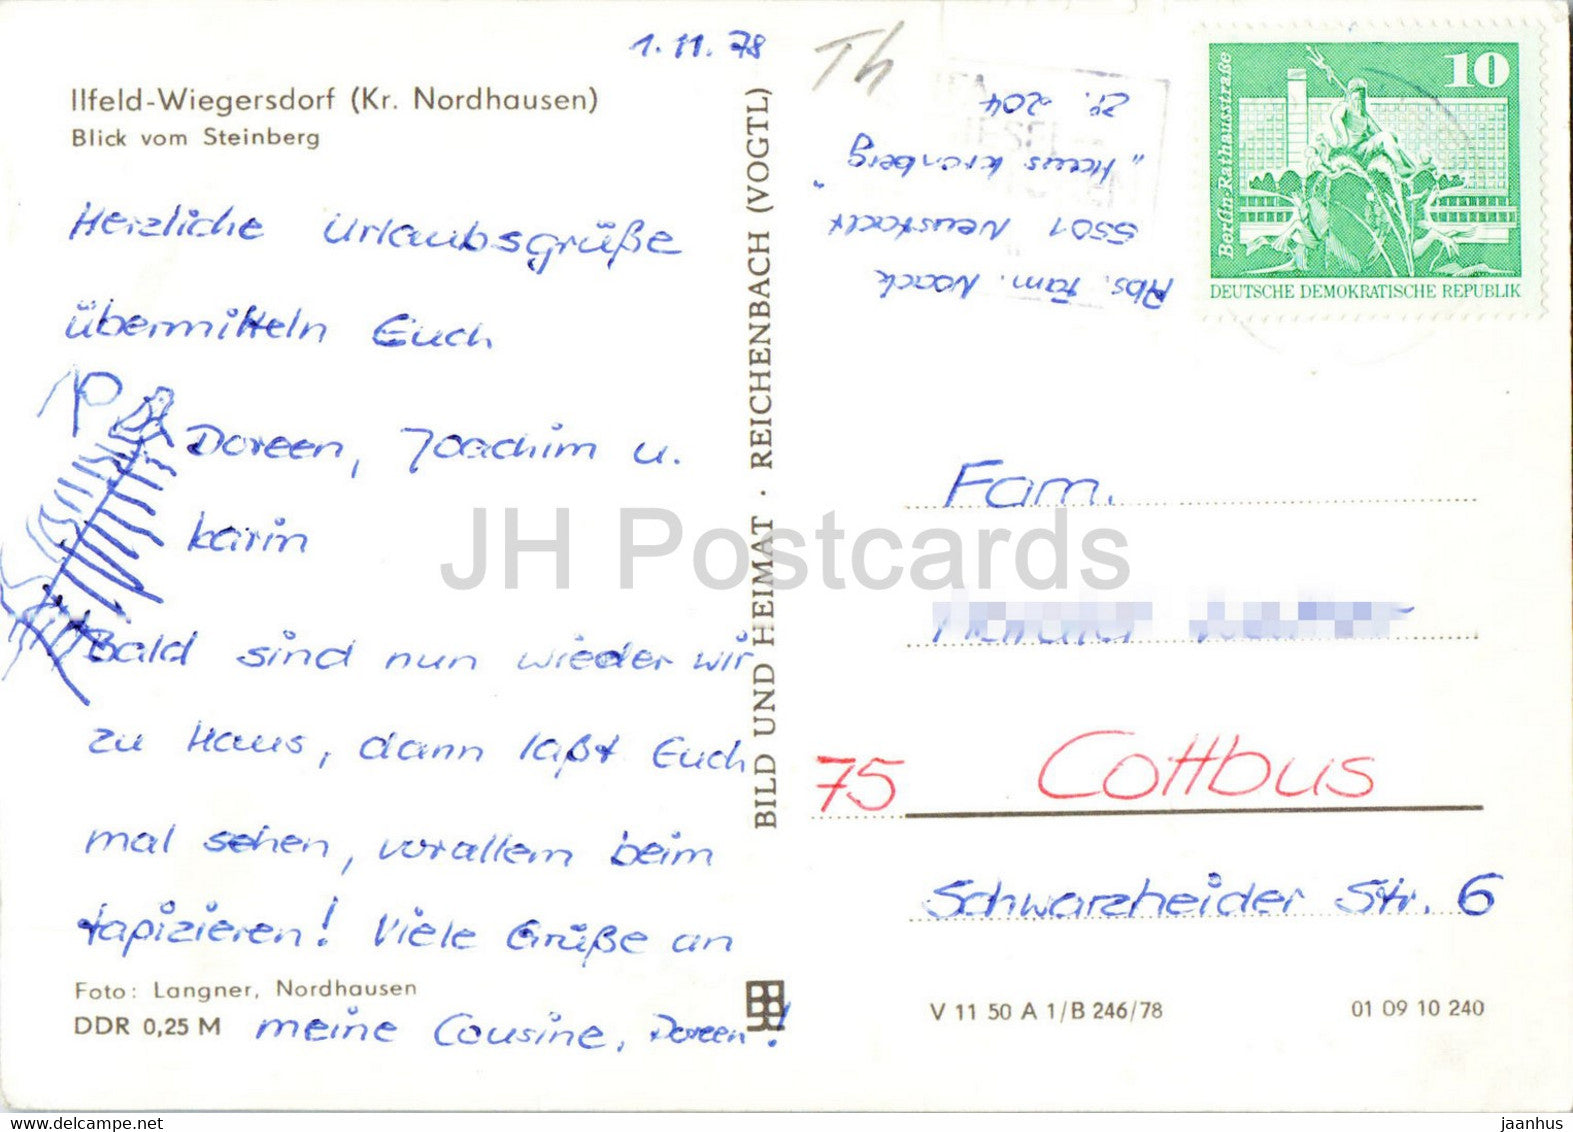 1.11.78
Th
Ilfeld-Wiegersdorf (Kr. Nordhausen)
Blick vom Steinberg
Herzliche Urlaubsgrüße
übermitteln Euch
Doreen, Joachim u.
Karin
Bald sind nun wieder wir
zu Haus, dann laßt Euch
mal sehen, vorallem beim
tapizieren! Viele Grüße an
meine Cousine, Doreen!
Foto: Langner, Nordhausen
DDR 0,25 M
BILD UND HEIMAT · REICHENBACH (VOGTL)
Abs. Fam. Noack
5501 Neustadt
"Haus Kronberg"
Zi. 204
10
Berlin-Rathausstraße
DEUTSCHE DEMOKRATISCHE REPUBLIK
Fam.
75 Cottbus
Schwarzheider Str. 6
V 11 50 A 1/B 246/78
01 09 10 240
JH Postcards
jaanhus